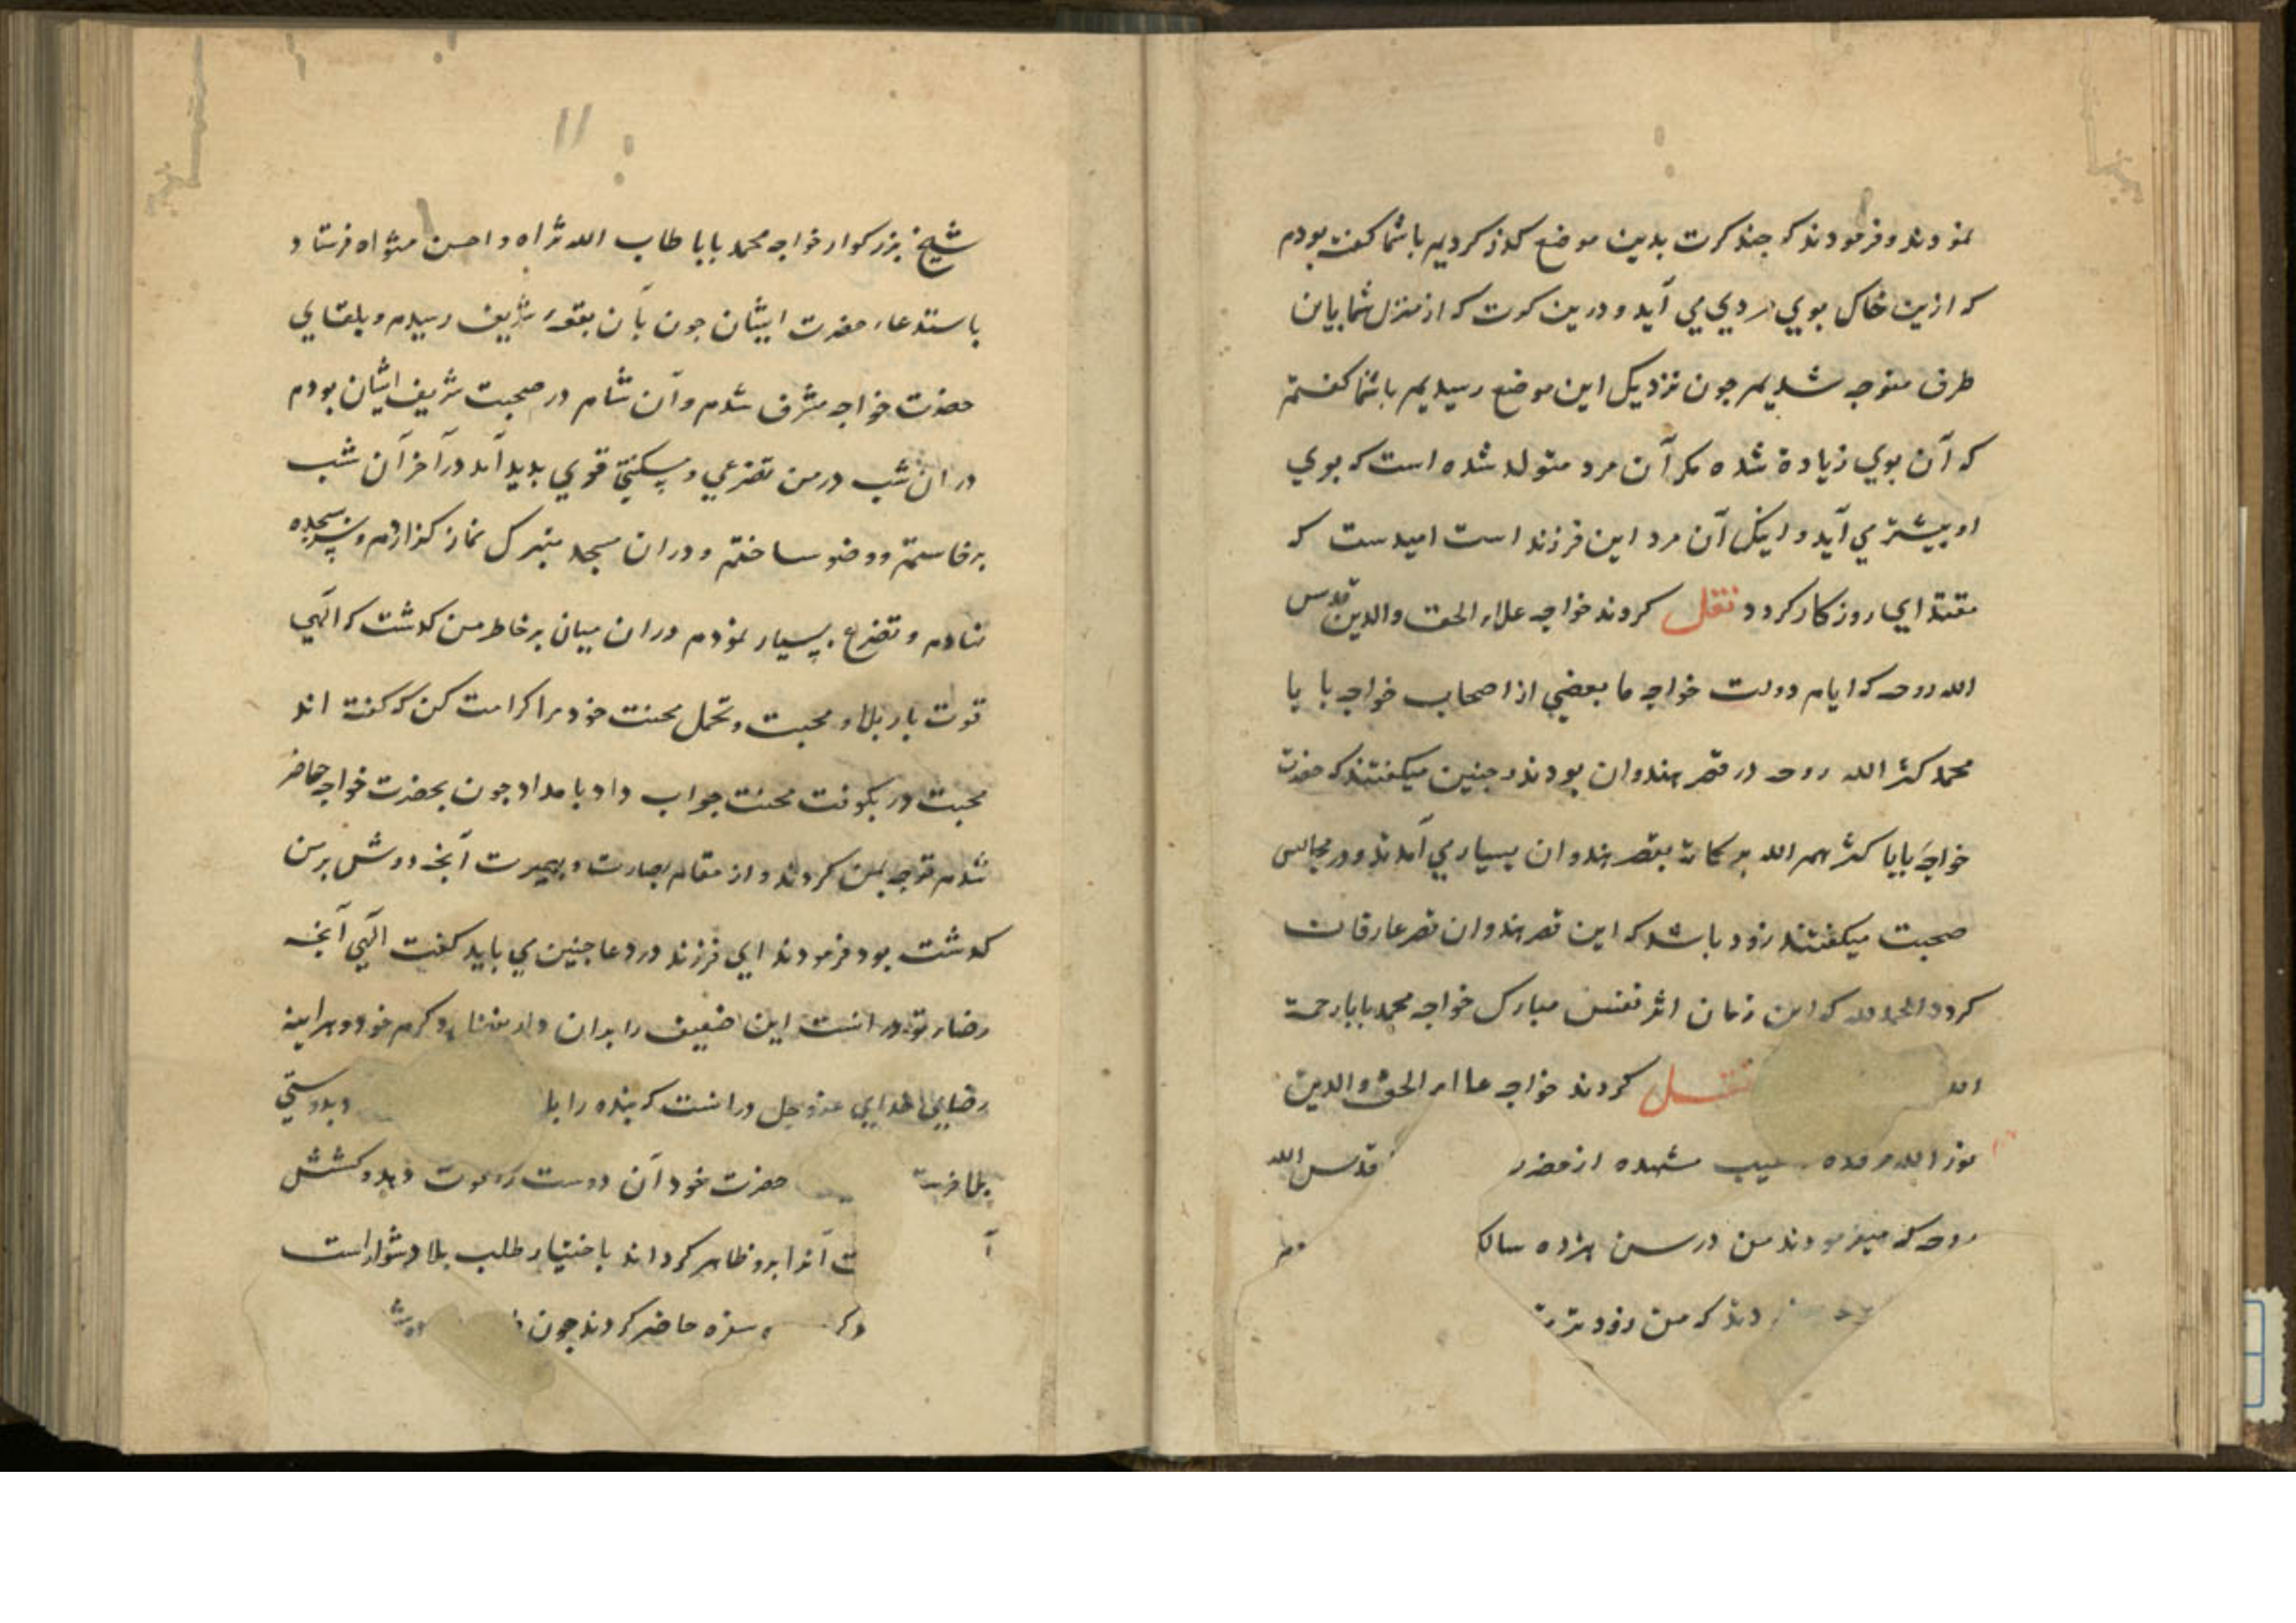 نمودند و فرمودند که چند کرت بدین موضع کذر کردیم باشما کفته بودم
که ازین خاک بوي مردي مي آید و درین کرت که از منزل شما باین
طرف متوجه شدیم چون نزدیک این موضع رسیدیم باشما کفتم
که آن بوي زیادة شده مکر آن مرد متولد شده است که بوي
او بیشتر مي آید و اینک آن مرد این فرزند است امیدست که
مقتداي روزکار کردد نقل کردند خواجه علاء الحق والدین قدس
الله روحه که ایام دولت خواجه ما بعضي از اصحاب خواجه بابا
محمد کثر الله روحه در قصر هندوان بودند و چنین میکفتند که حضرت
خواجه بابا کثرهم الله برکاته بقصر هندوان بسیار مي آمدند و در مجالس
صحبت میکفتند زود باشد که این قصر هندوان قصر عارفان
کردد الحمدلله که این زمان اثر نفس مبارک خواجه محمد بابا رحمة
الله نقل کردند خواجه علاء الحق والدین
نور الله مرقده شنیده از حضرت قدس الله
روحه که میفرمودند من در سن هژده سالک
دند که من زودتر
۱۱
شیخ بزرکوار خواجه محمد بابا طاب الله ثراه و احسن مثواه فرستاد
باستدعاء حضرت ایشان چون بآن بقعه شریف رسیدم و بلقاي
حضرت خواجه مشرف شدم و آن شام در صحبت شریف ایشان بودم
در ان شب در من تضرعي و مسکنتي قوي بدید آمد در آخر آن شب
برخاستم و وضو ساختم و دران مسجد متبرک نماز کذاردم و سر بسجده
نهادم و تضرع بسیار نمودم دران میان بر خاطر من کذشت که الهي
قوت بار بلا و محبت و تحمل محنت خود مرا کرامت کن که کفته اند
محبت در بکوفت محنت جواب داد بامداد چون بحضرت خواجه حاضر
شدم توجه بمن کردند و از مقام بصارت و بصیرت آنچه دوش بر من
کذشت بود فرمودند اي فرزند در دعا چنین مي باید کفت الهي آنچه
رضاء تو در انست این ضعیف را بدان دار بفضل و کرم خود و هرآینه
رضاي خداي عزوجل در انست که بنده را بلا و بدوستي
بلا فرست حضرت خود آن دوست را قوت دهد و کشش
آ ت آنرا برو ظاهر کرداند باختیار طلب بلا دشوار است
وکر سفره حاضر کردند چون